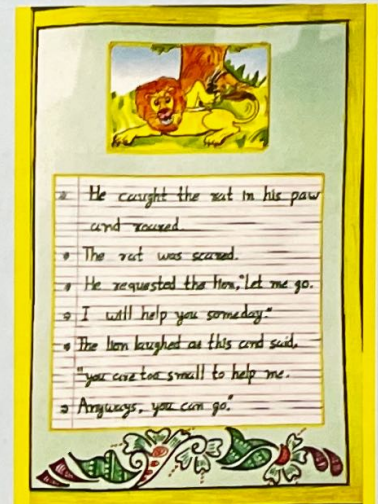 He caught the rat in his paw
and roared.
The rat was scared.
He requested the lion,"Let me go.
I will help you someday."
The lion laughed at this and said,
"you are too small to help me.
Anyways, you can go."